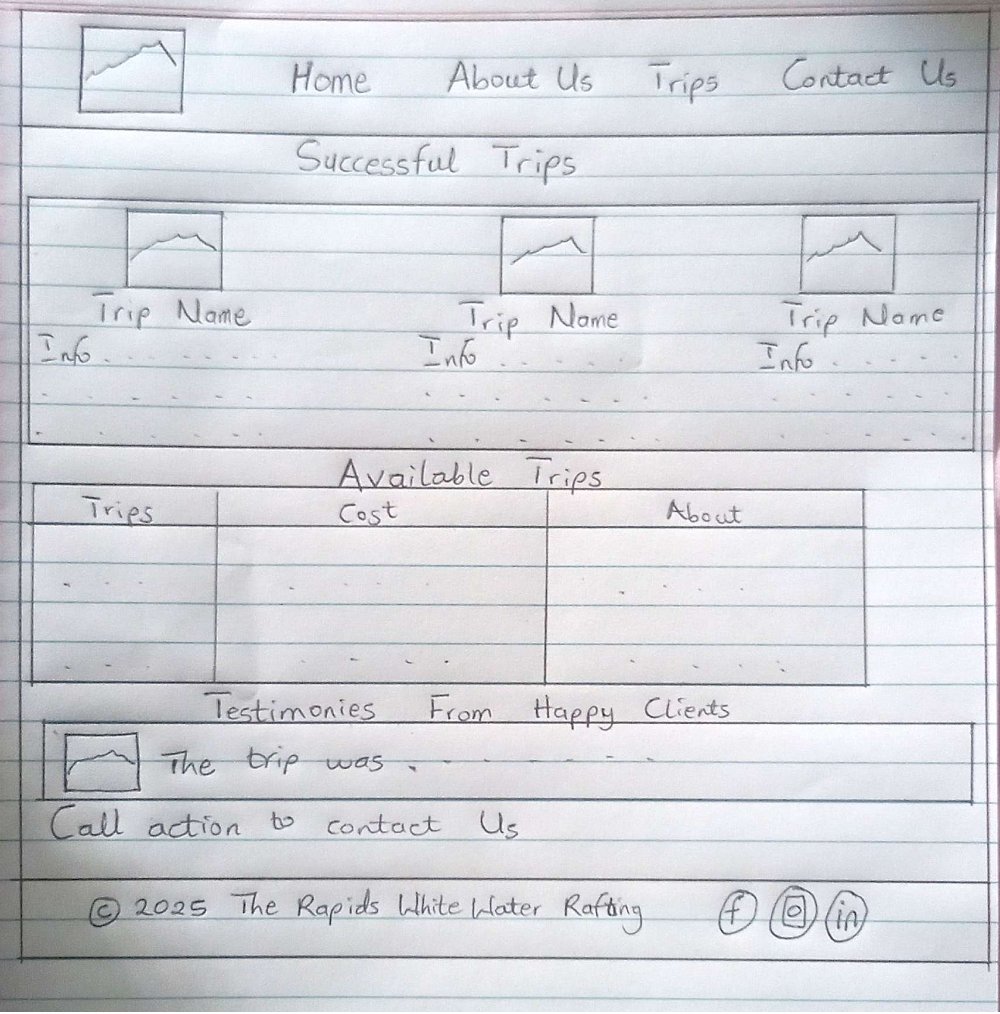 Home About Us Trips Contact Us
Successful Trips
Trip Name Trip Name Trip Name
Info . . . . . . . Info . . . . . Info . . . . .
Available Trips
Trips Cost About
Testimonies From Happy Clients
The trip was . - - - - - -
Call action to contact Us
© 2025 The Rapids White Water Rafting f in